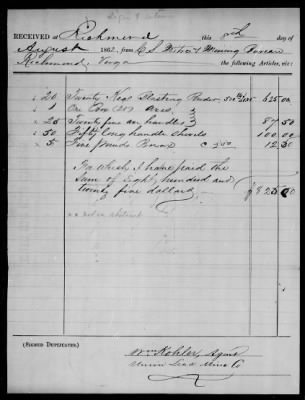 RECEIVED AT Richmond this 8th day of
August 1862, from C.S. Nitre & Mining Bureau
Richmond, Virga the following Articles, viz:
20 Twenty Kegs Blasting Powder, 500 lbs 625.00
1 One Cow (20)
25 Twenty five axe handles 87.50
50 Fifty long handle shovels 100.00
5 Five pounds Borax @ 2.50 12.50
For which I have paid the
Sum of Eight hundred and
twenty five dollars $825.00
not on abstract
(SIGNED DUPLICATES.)
Wm Kohler, Agent
Union Lead Mine Co